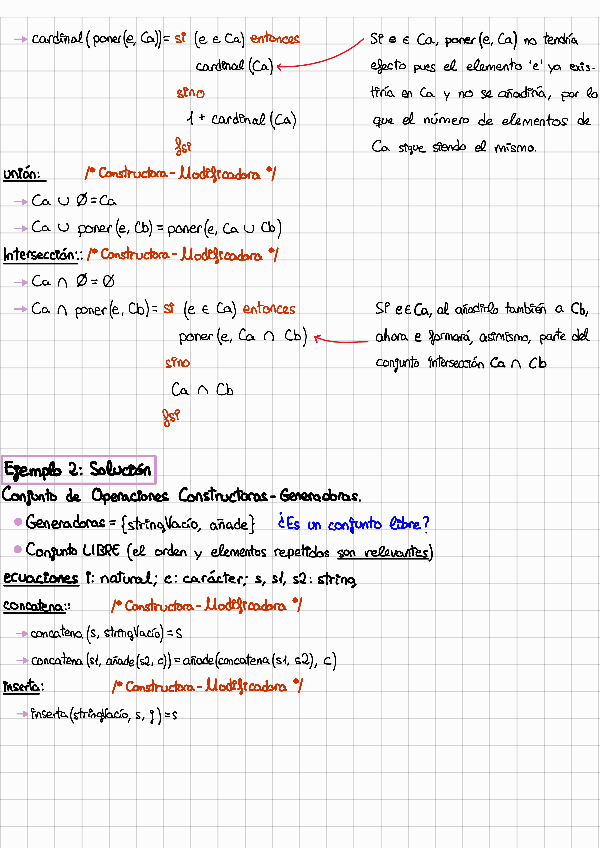 → cardinal (poner(e, Ca)) = si (e ∈ Ca) entonces
cardinal (Ca)
sino
1 + cardinal (Ca)
fsi
Si e ∈ Ca, poner(e, Ca) no tendría
efecto pues el elemento 'e' ya exis-
tiría en Ca y no se añadiría, por lo
que el número de elementos de
Ca sigue siendo el mismo.
unión: /* Constructora - Modificadora */
→ Ca ∪ Ø = Ca
→ Ca ∪ poner(e, Cb) = poner(e, Ca ∪ Cb)
Intersección:: /* Constructora - Modificadora */
→ Ca ∩ Ø = Ø
→ Ca ∩ poner(e, Cb) = si (e ∈ Ca) entonces
poner(e, Ca ∩ Cb)
sino
Ca ∩ Cb
fsi
Si e ∈ Ca, al añadirlo también a Cb,
ahora e formará, asimismo, parte del
conjunto intersección Ca ∩ Cb
Ejemplo 2: Solución
Conjunto de Operaciones Constructoras - Generadoras.
• Generadoras = {stringVacío, añade} ¿Es un conjunto libre?
• Conjunto LIBRE (el orden y elementos repetidos son relevantes)
ecuaciones i: natural; c: carácter; s, s1, s2: string
concatena:: /* Constructora - Modificadora */
→ concatena (s, stringVacío) = s
→ concatena (s1, añade(s2, c)) = añade(concatena (s1, s2), c)
inserta: /* Constructora - Modificadora */
→ inserta (stringVacío, s, j) = s